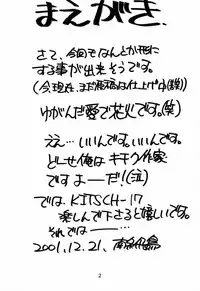 まえがき.
さて、今回もなんとか形に
する事が出来そうです。
(今現在、まだ原稿は仕上げ中(爆))
ゆがんだ愛で花火です。(笑)
ええ…いいんです。いいんです。
どーせ俺はキチク作家
ですよーだ!(泣)
では、KITSCH-17
楽しんで下さると嬉しいです。
それでは——…
2001.12.21,
2